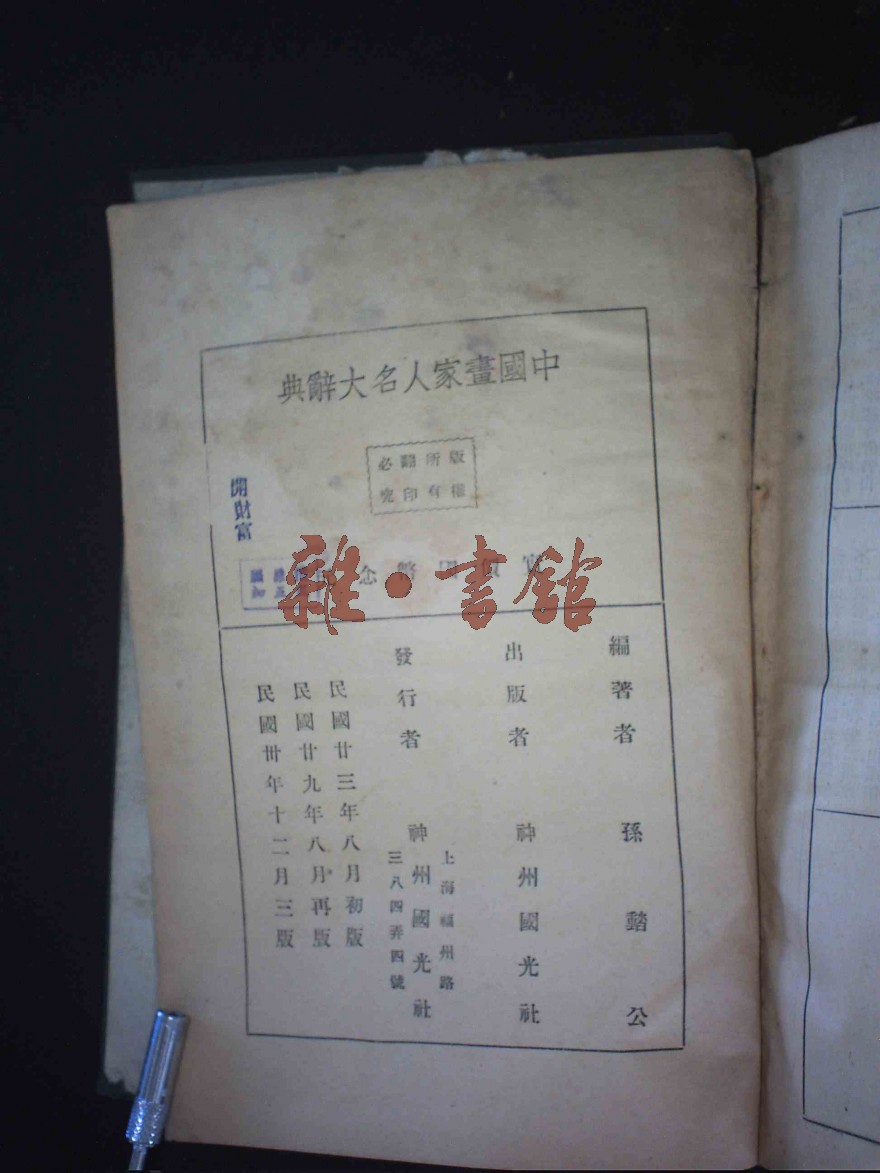 中國畫家人名大辭典
版權所有
翻印必究
開財富
雜·書館
編著者 孫䥗公
出版者 神州國光社
發行者 神州國光社
上海福州路
三八四弄四號
民國廿三年八月初版
民國廿九年八月再版
民國卅年十二月三版